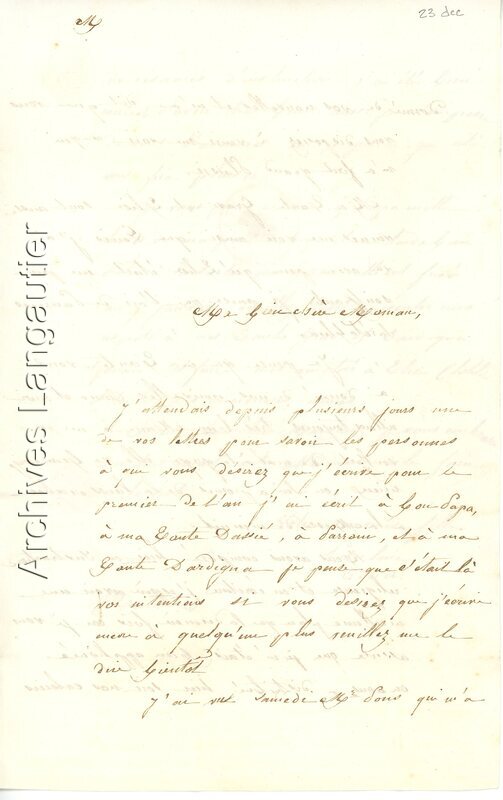 23 dec
Ma bien chère Maman,
J'attendais depuis plusieurs jours une
de vos lettres pour savoir les personnes
à qui vous désirez que j'écrive pour le
premier de l'an j'ai écrit à bon Papa,
à ma Tante Dassié, à Parrain, et à ma
Tante Dardigna je pense que c'était là
vos intentions si vous désirez que j'écrive
encore à quelqu'un plus veuillez me le
dire bientôt
J'ai vu samedi Mr Pons qui m'a
Archives Langautier